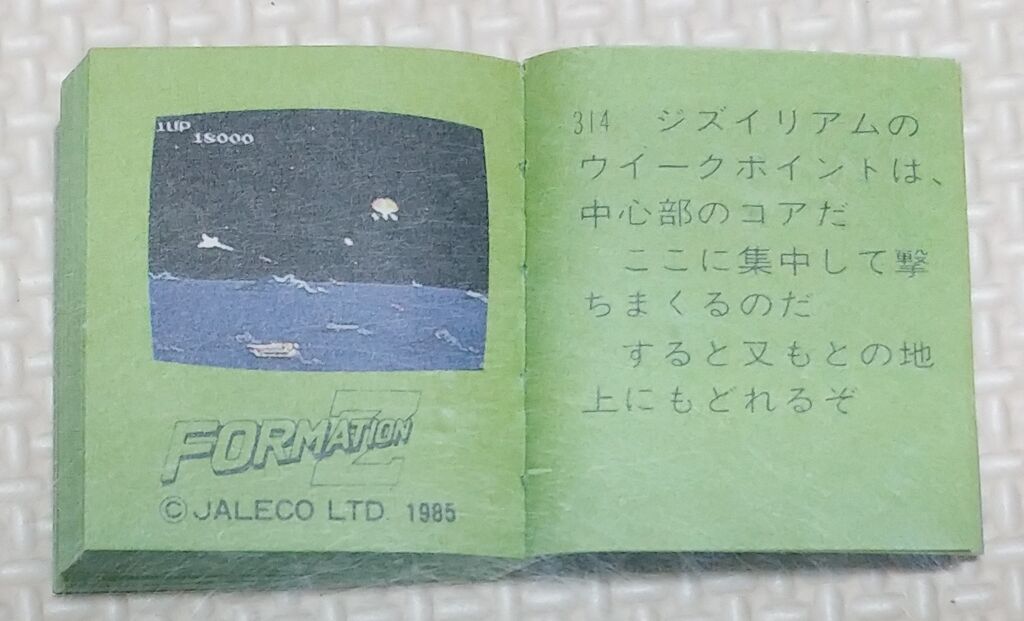 1UP
18000
FORMATION Z
©JALECO LTD. 1985
314 ジズイリアムの
ウイークポイントは、
中心部のコアだ
ここに集中して撃
ちまくるのだ
すると又もとの地
上にもどれるぞ